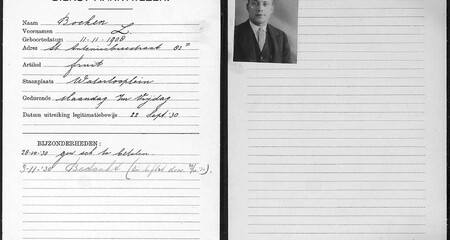 DIENST MARKTWEZEN
Naam Bocken
Voornamen L.
Geboortedatum 11-11-1908
Adres St. Antoniesbreestraat
Artikel fruit
Staanplaats Waterlooplein
Gedurende Maandag t/m Vrijdag
Datum uitreiking legitimatiebewijs 22 Sept '30
BIJZONDERHEDEN:
28-10-30 te betalen
3-11-'30 Bedankt